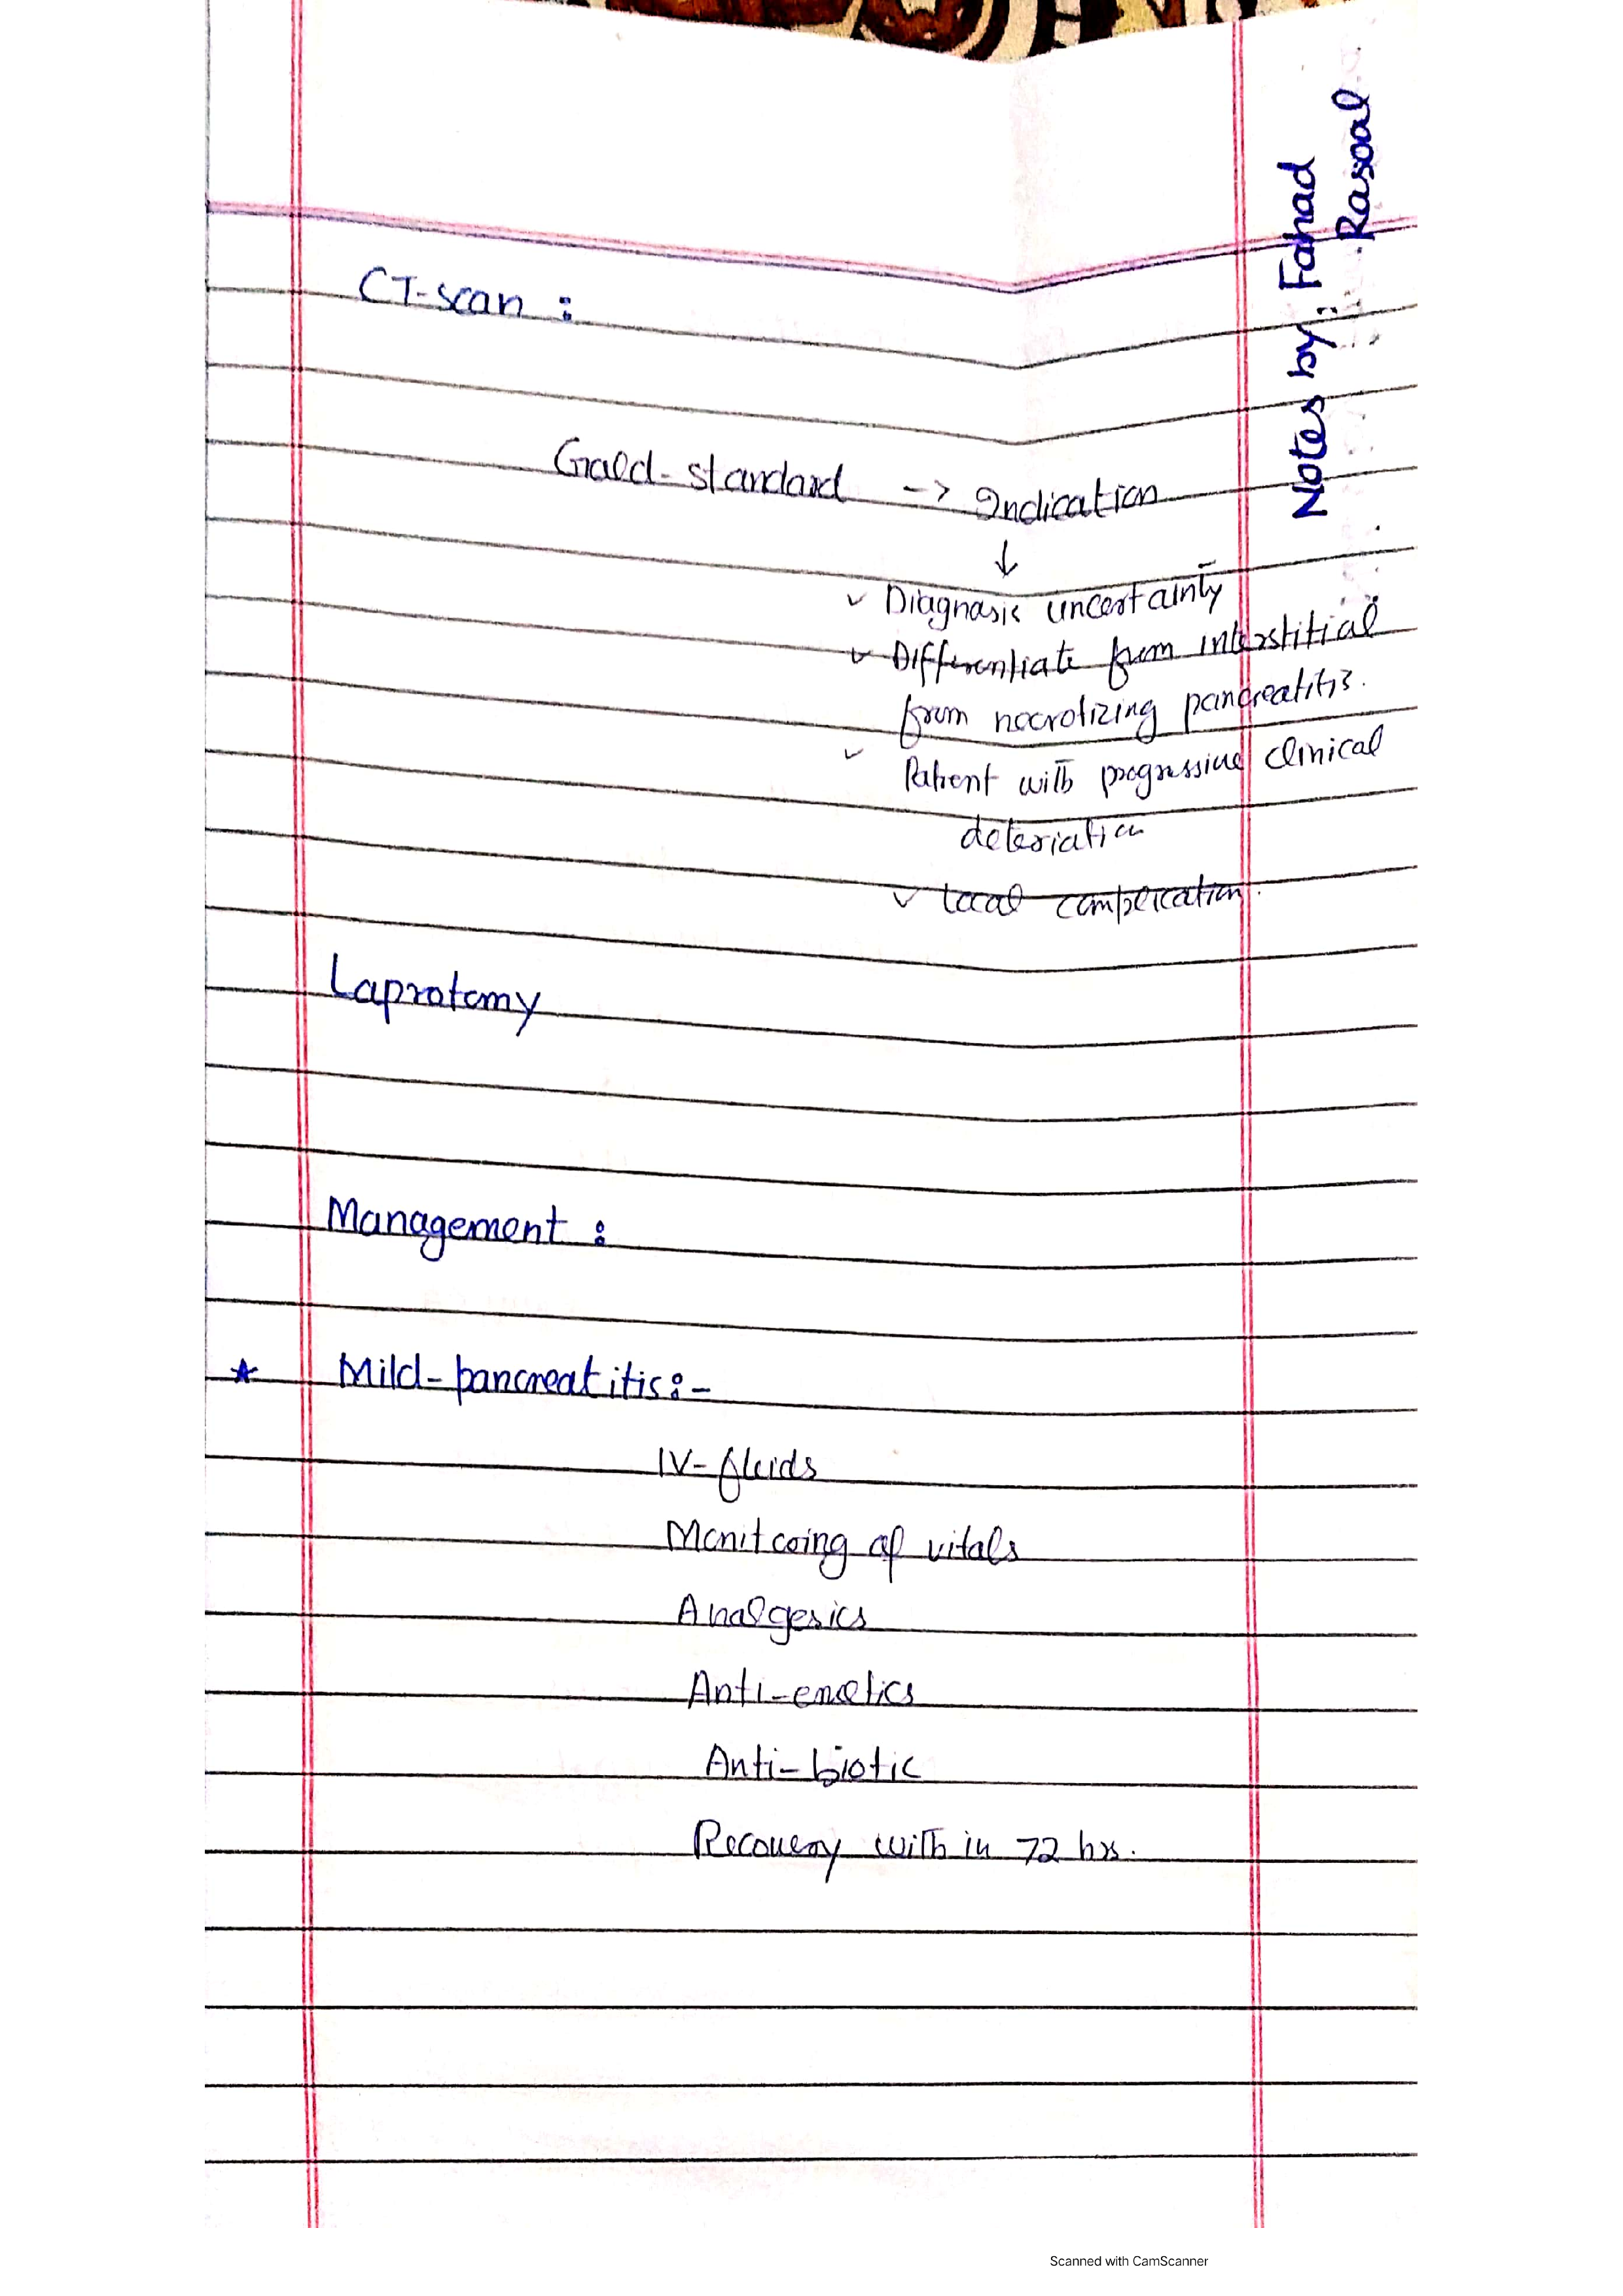 Notes by: Fahad
Rasool
CT-scan :
Gold-standard -> Indication
↓
✓ Diagnosis uncertainty
✓ Differentiate from interstitial
from necrotizing pancreatitis.
✓ Patient with progressive clinical
deteriation
✓ local complication.
Laprotomy
Management :
★ Mild-pancreatitis:-
IV-fluids
Monitoring of vitals
Analgesics
Anti-emetics
Anti-biotic
Recovery with in 72 hrs.
Scanned with CamScanner